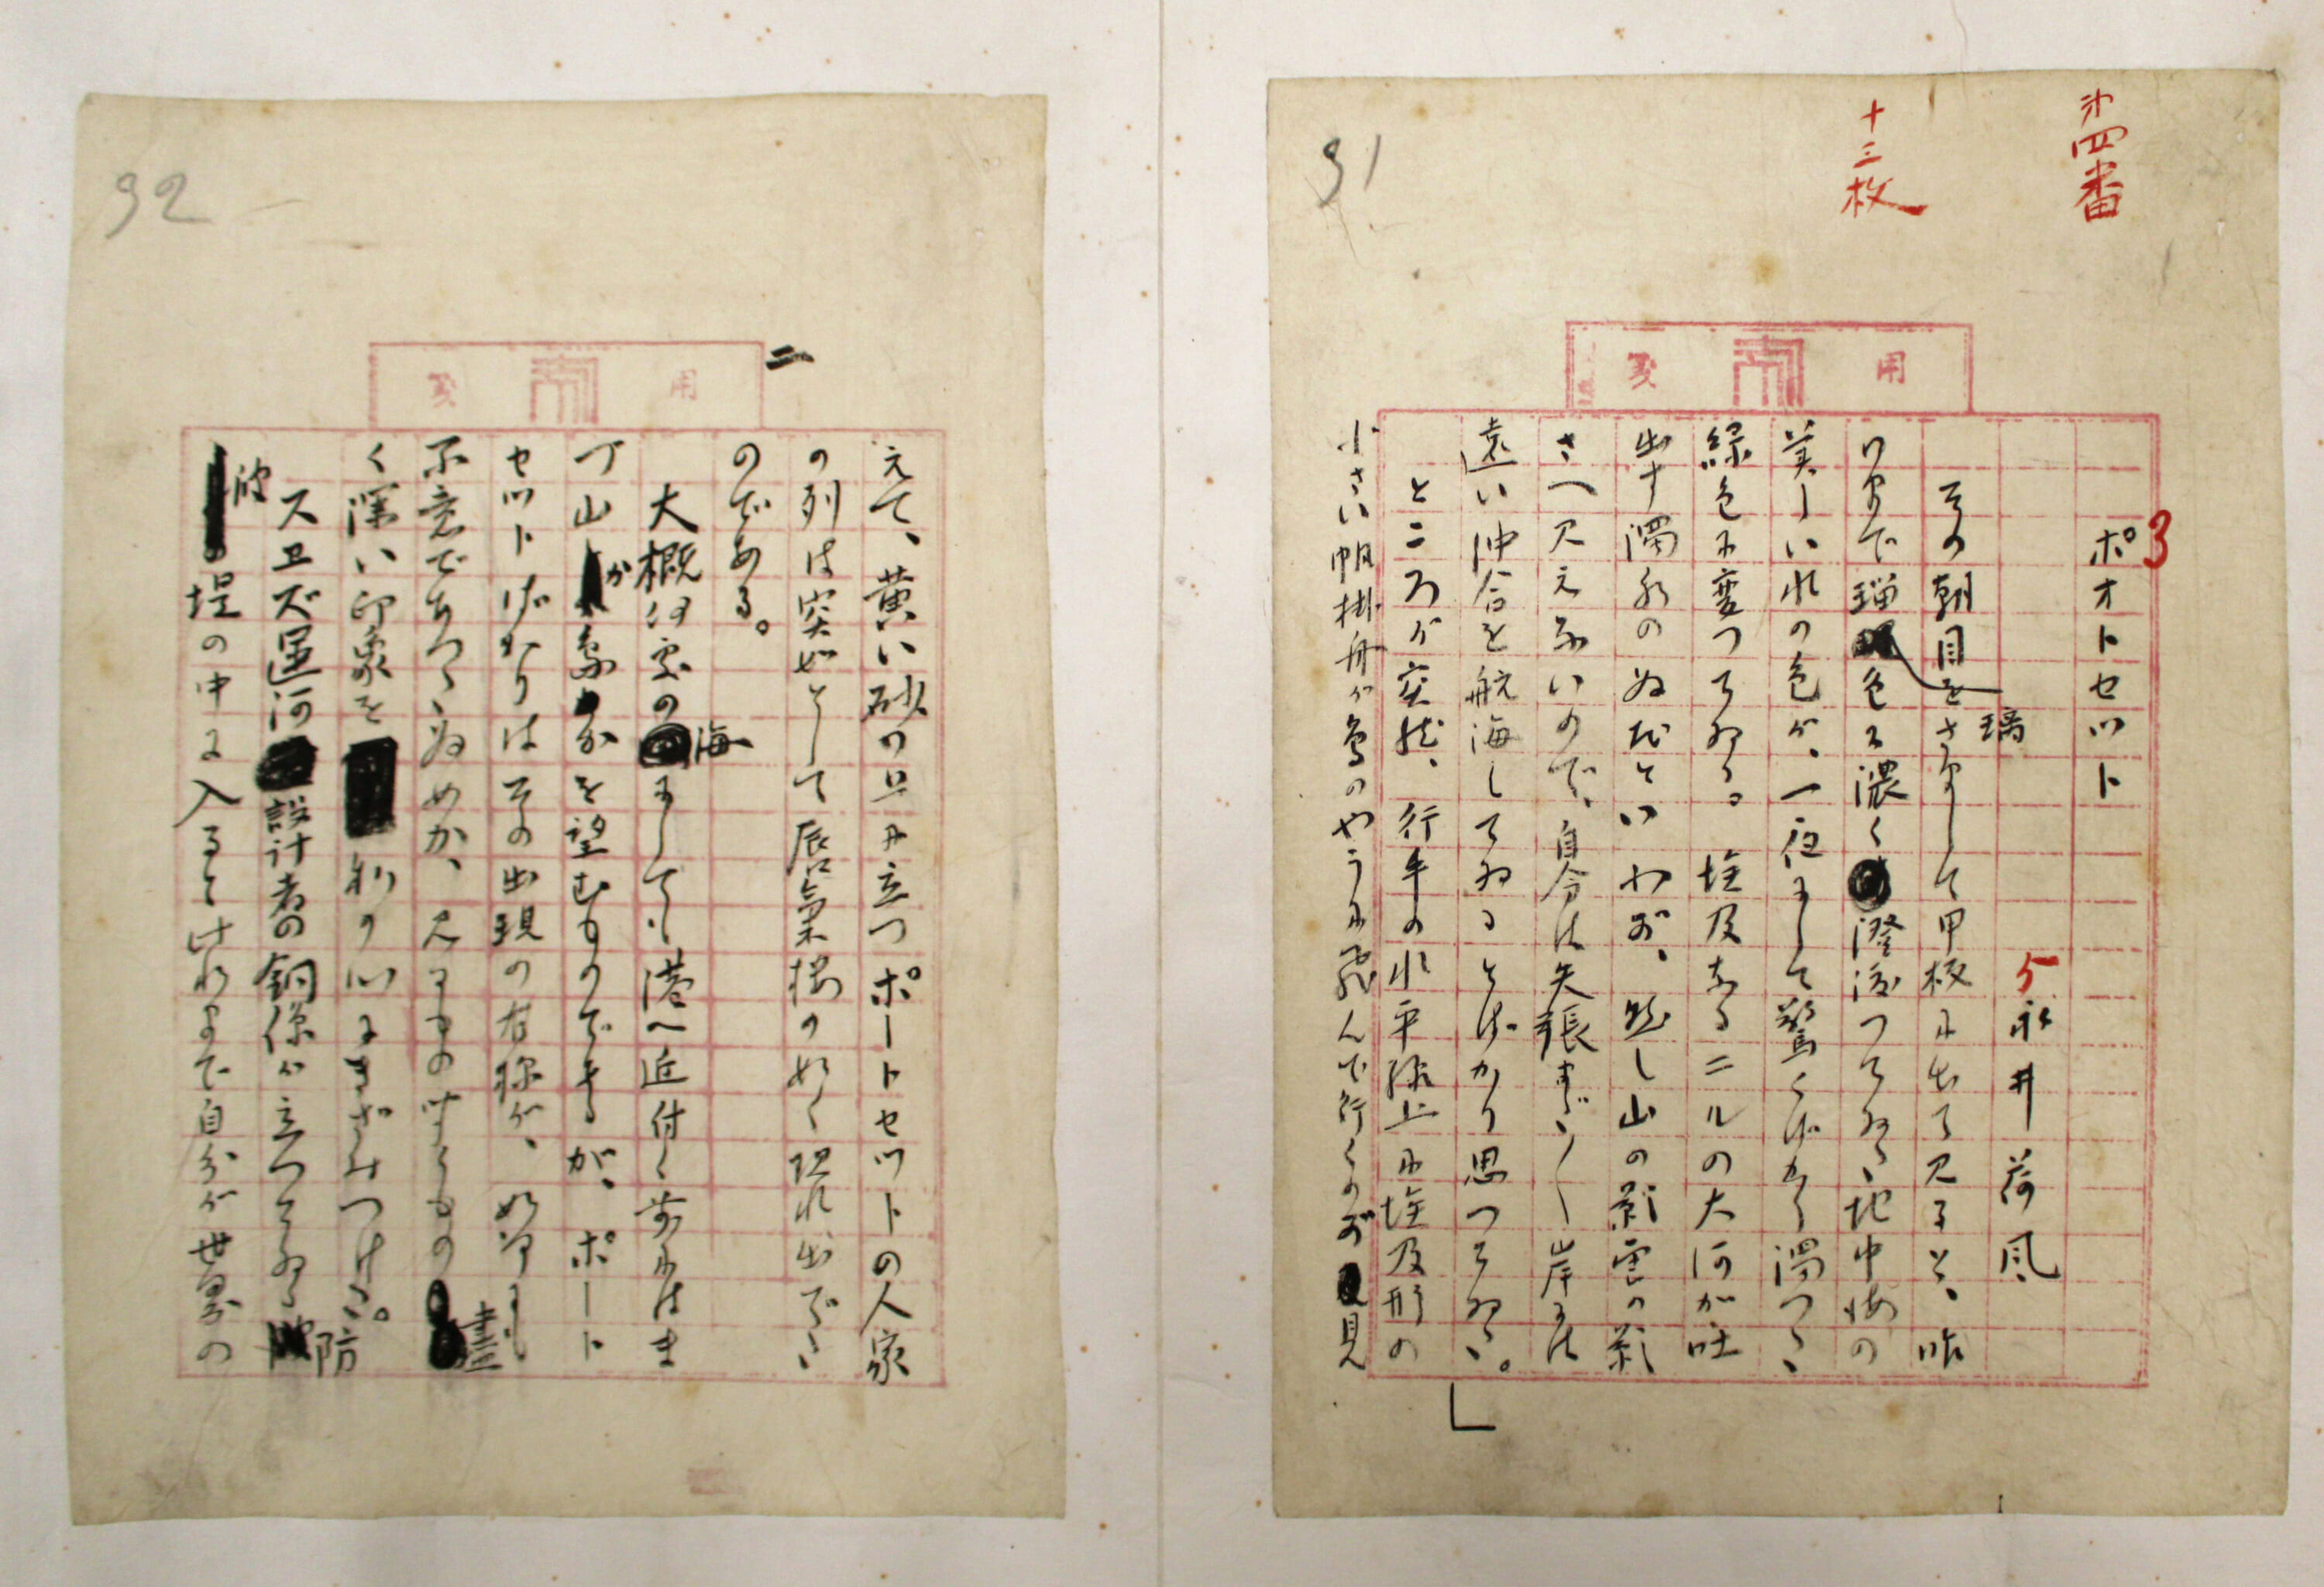 第四番
十三枚
31
用
箋
3
ポオトセット
5
永井荷風
その朝目をさまして甲板に出て見ると、昨
日まで瑠璃色に濃く澄渡つてゐた地中海の
美しい水の色が、一夜にして驚くばかり濁つた
緑色に変つてゐる。埃及なるニルの大河が吐
出す濁水のためだといわれ、然し山の影雲の影
さへ見えないので、自分は矢張まだ〱岸には
遠い沖合を航海してゐることばかり思つてゐた。
ところが突然、行手の水平線上に埃及形の
小さい帆掛舟が鳥のやうに飛んで行くのが見
32
二
用
箋
えて、黄い砂の上に立つポートセットの人家
の列は突如として蜃気楼の如く現れ出でた
のである。
大概は雲の海にしても港へ近付く前にはま
づ山か島かを望むものであるが、ポート
セットばかりはその出現の有様が、如何にも
不意であつたゐめか、見るもの凡てのものゝ
く深い印象を私の心にきざみつけた。
スエズ運河設計者の銅像が立つてゐる防
波堤の中に入るとけれまで自分が世界の